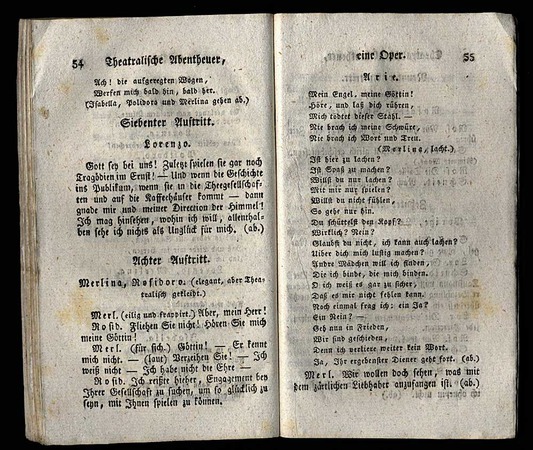 54 Theatralische Abentheuer,
Ach! die aufgeregten Wogen,
Werfen mich bald hin, bald her.
(Isabella, Polidoro und Merlina gehen ab.)
Siebenter Auftritt.
Lorenzo.
Gott sey bei uns! Zuletzt spielen sie gar noch
Tragödien im Ernst! — Und wenn die Geschichte
ins Publikum, wenn sie in die Theegesellschaf-
ten und auf die Kaffeehäuser kommt — dann
gnade mir und meiner Direction der Himmel!
Ich mag hinsehen, wohin ich will, allenthal-
ben sehe ich nichts als Unglück für mich. (ab.)
Achter Auftritt.
Merlina, Rosidoro. (elegant, aber Thea-
tralisch gekleidt.)
Merl. (eilig und frappirt.) Aber, mein Herr!
Rosid. Fliehen Sie nicht! Hören Sie mich
meine Göttin!
Merl. (für sich.) Göttin! — Er kennt
mich nicht. — (laut) Verzeihen Sie! — Ich
weiß nicht — Ich habe nicht die Ehre —
Rosid. Ich reißte hieher, Engagement bey
Ihrer Gesellschaft zu suchen, um so glücklich zu
seyn, mit Ihnen spielen zu können.
eine Oper. 55
Arie.
Mein Engel, meine Göttin!
Höre, und laß dich rühren,
Mich tödtet dieser Stahl. —
Nie brach ich meine Schwüre,
Nie brach ich Wort und Treu.
(Merlina, lacht.)
Ist hier zu lachen?
Ist Spaß zu machen?
Willst du nur lachen?
Mit mir nur spielen?
Willst du nicht fühlen,
So gehe nur hin.
Du schüttelst den Kopf?
Wirklich? Nein?
Glaubst du nicht, ich kann auch lachen?
Ueber dich mich lustig machen?
Andre Mädchen will ich finden,
Die ich binde, die mich binden.
O ich weiß es gar zu sicher,
Daß es mir nicht fehlen kann.
Noch einmal frag ich: ein Ja?
Ein Nein? —
Geh nun in Frieden,
Wir sind geschieden,
Denn ich verliere weiter kein Wort.
Ja, Ihr ergebenster Diener geht fort. (ab.)
Merl. Wir wollen doch sehen, was mit
dem zärtlichen Liebhaber anzufangen ist. (ab.)